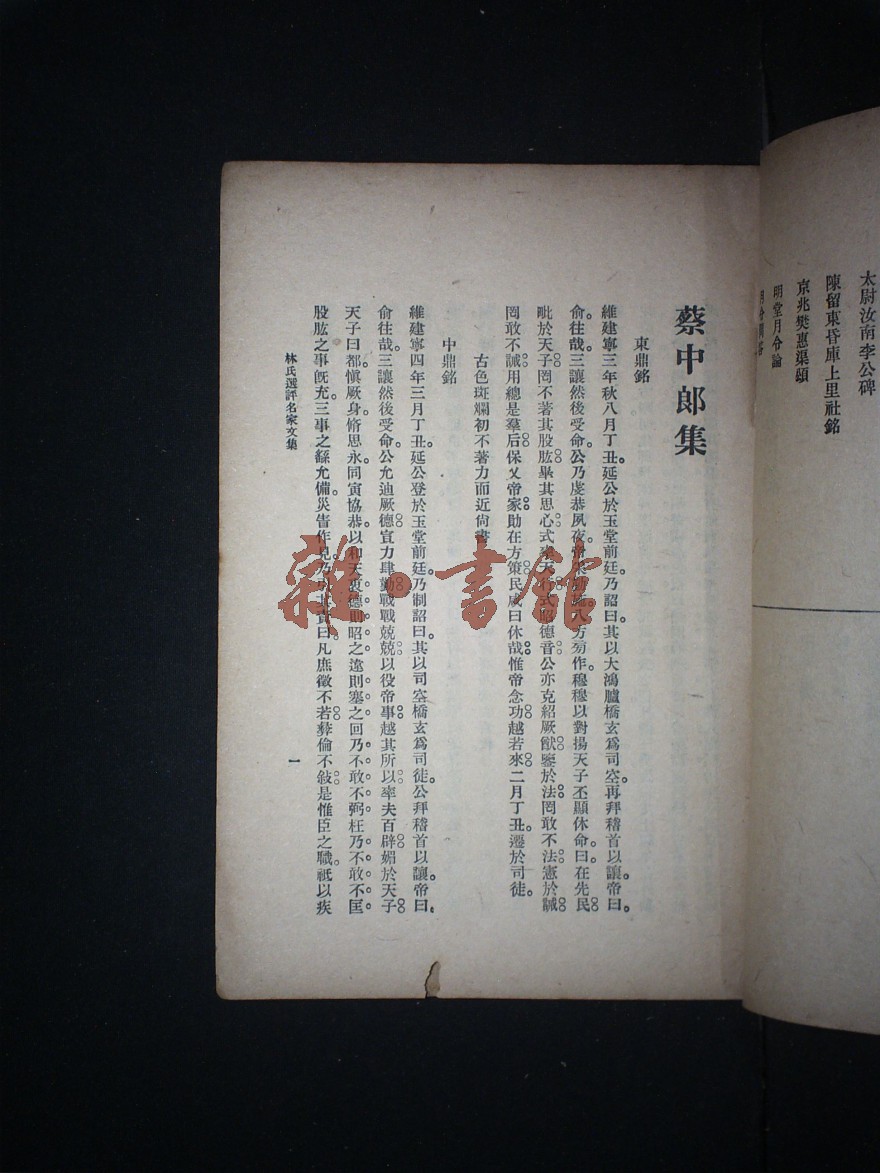 太尉汝南李公碑
陳留東昏庫上里社銘
京兆樊惠渠頌
明堂月令論
蔡中郎集
東鼎銘
維建寧三年秋八月丁丑。延公於玉堂前廷。乃詔曰。其以大鴻臚橋玄爲司空。再拜稽首以讓。帝曰。
俞往哉。三讓然後受命。公乃虔恭夙夜。帝采勤施八方。旁作穆穆以對揚天子丕顯休命。曰。在先民
毗於天子。罔不著其股肱畢其思心。式率天行。式昭德音。公亦克紹厥猷。鑒於法。罔敢不法。憲於誠
罔敢不誠。用總是羣后。保乂帝家。勛在方策。民咸曰休哉。惟帝念功。越若來二月丁丑。遷於司徒。
古色斑斕初不著力而近尙書
中鼎銘
維建寧四年三月丁丑。延公登於玉堂前廷。乃制詔曰。其以司空橋玄爲司徒。公拜稽首以讓。帝曰。
俞往哉。三讓然後受命。公允迪厥德。宣力肆勤。戰戰兢兢。以役帝事。越其所以率夫百辟媚於天子
天子曰。都愼厥身脩思永。同寅協恭。以和天衷。德則昭之。違則塞之。回乃不敢不弼。枉乃不敢不匡
股肱之事旣充。三事之繇允備。災眚作見。乃曰。凡庶徵不若。彝倫不敍。是惟臣之職。祇以疾
林氏選評名家文集
一
雜·書館